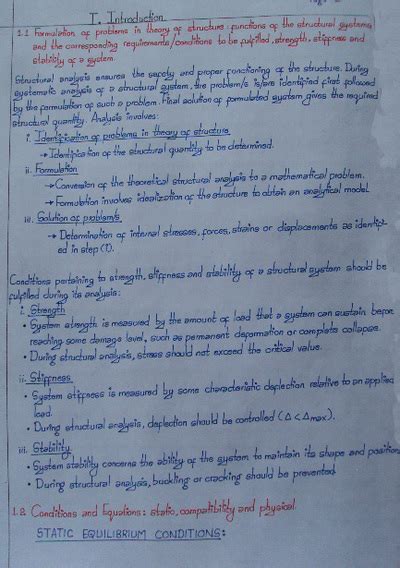 I. Introduction
1.1 Formulation of problems in theory of structure: functions of the structural systems
and the corresponding requirements/conditions to be fulfilled, strength, stiffness and
stability of a system.
Structural analysis ensures the safety and proper functioning of the structure. During
systematic analysis of a structural system, the problem/s is/are identified first followed
by the formulation of such a problem. Final solution of formulated system gives the required
structural quantity. Analysis involves:
i. Identification of problems in theory of structure
→ Identification of the structural quantity to be determined.
ii. Formulation
→ Conversion of the theoretical structural analysis to a mathematical problem.
→ Formulation involves idealization of the structure to obtain an analytical model.
iii. Solution of problem/s
→ Determination of internal stresses, forces, strains or displacements as identifi-
ed in step (1).
Conditions pertaining to strength, stiffness and stability of a structural system should be
fulfilled during its analysis:
i. Strength
• System strength is measured by the amount of load that a system can sustain before
reaching some damage level, such as permanent deformation or complete collapse.
• During structural analysis, stress should not exceed the critical value.
ii. Stiffness
• System stiffness is measured by some characteristic deflection relative to an applied
load.
• During structural analysis, deflection should be controlled (Δ < Δmax).
iii. Stability
• System stability concerns the ability of the system to maintain its shape and position
• During structural analysis, buckling or cracking should be prevented.
1.2 Conditions and Equations: static, compatibility and physical.
STATIC EQUILIBRIUM CONDITIONS: